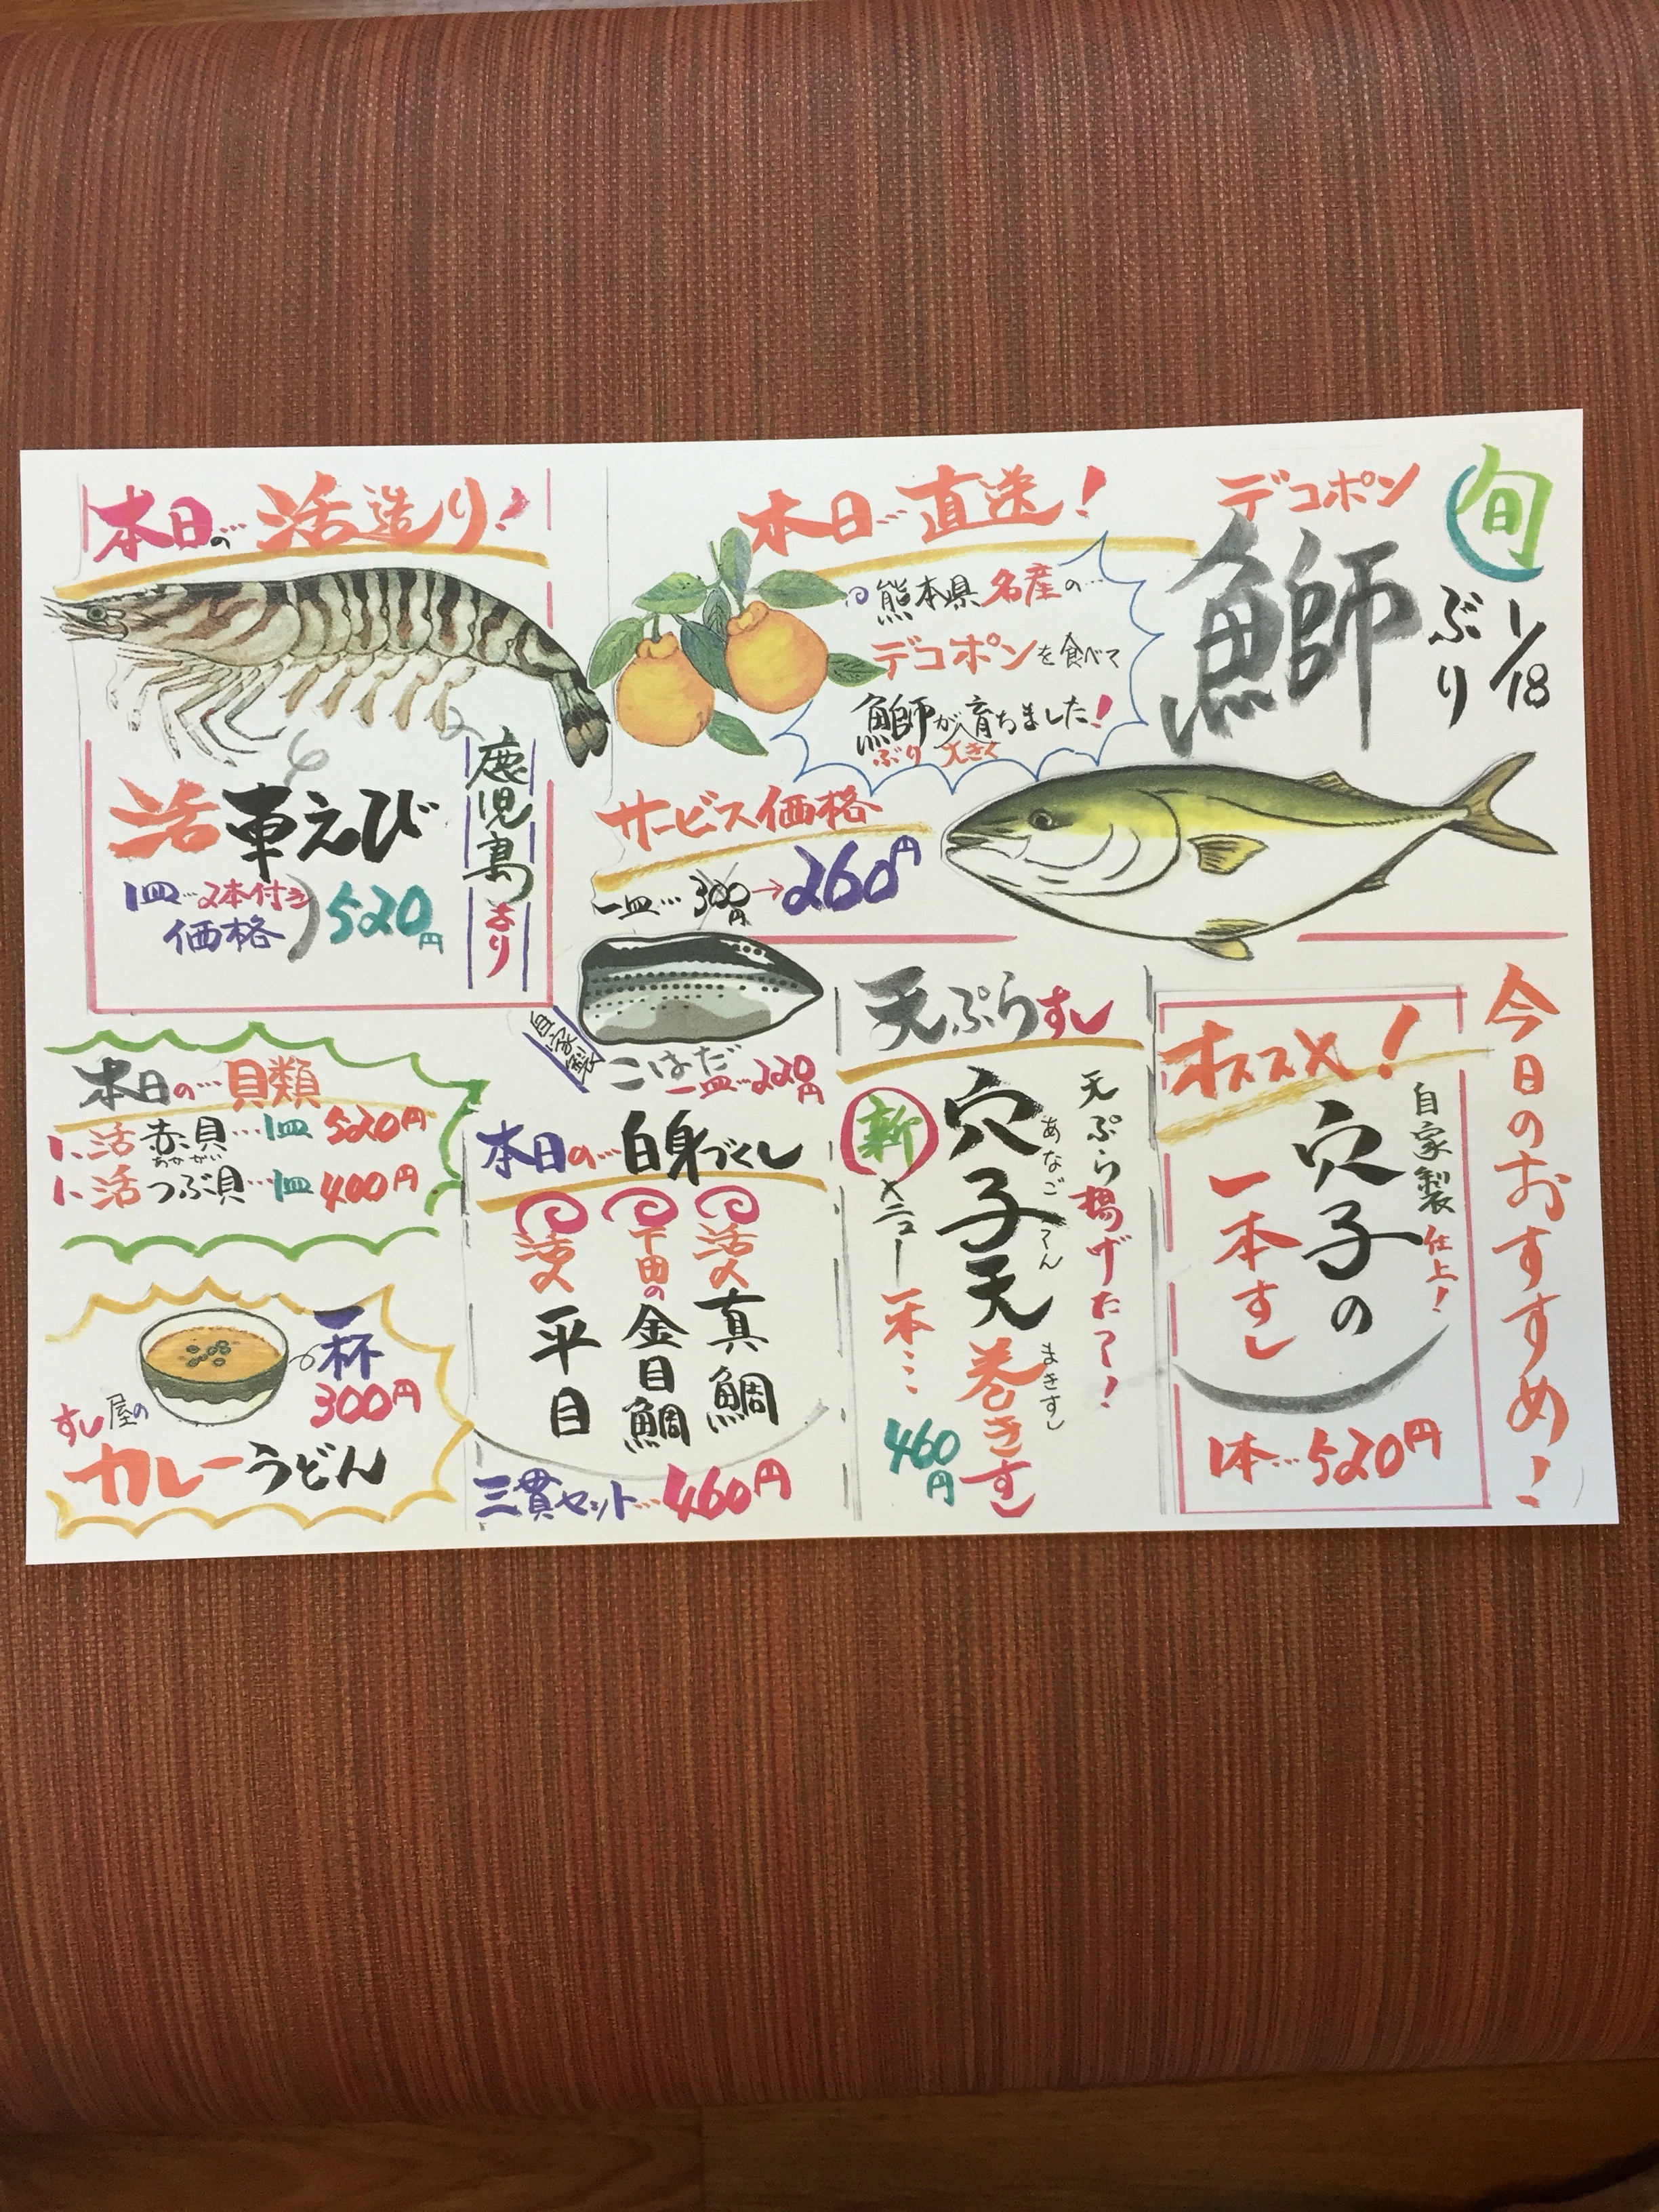 今日のおすすめ!
旬
1/18
デコポン
鰤
ぶり
本日…直送!
熊本県名産の…
デコポンを食べて
鰤が大きく育ちました!
ぶり
サービス価格
一皿…300円→260円
本日の…活造り!
鹿児島より
活車えび
1皿…2本付き
価格
520円
オススメ!
自家製仕上!
穴子の
一本すし
1本…520円
天ぷらすし
天ぷら揚げたて!
穴子天巻きすし
あなごてん
まきすし
新メニュー
一本…
460円
自家製
こはだ
一皿…220円
本日の…白身づくし
活〆真鯛
下田の金目鯛
活〆平目
三貫セット…460円
本日の…貝類
1、活赤貝…1皿520円
あかがい
1、活つぶ貝…1皿400円
一杯
300円
すし屋の
カレーうどん